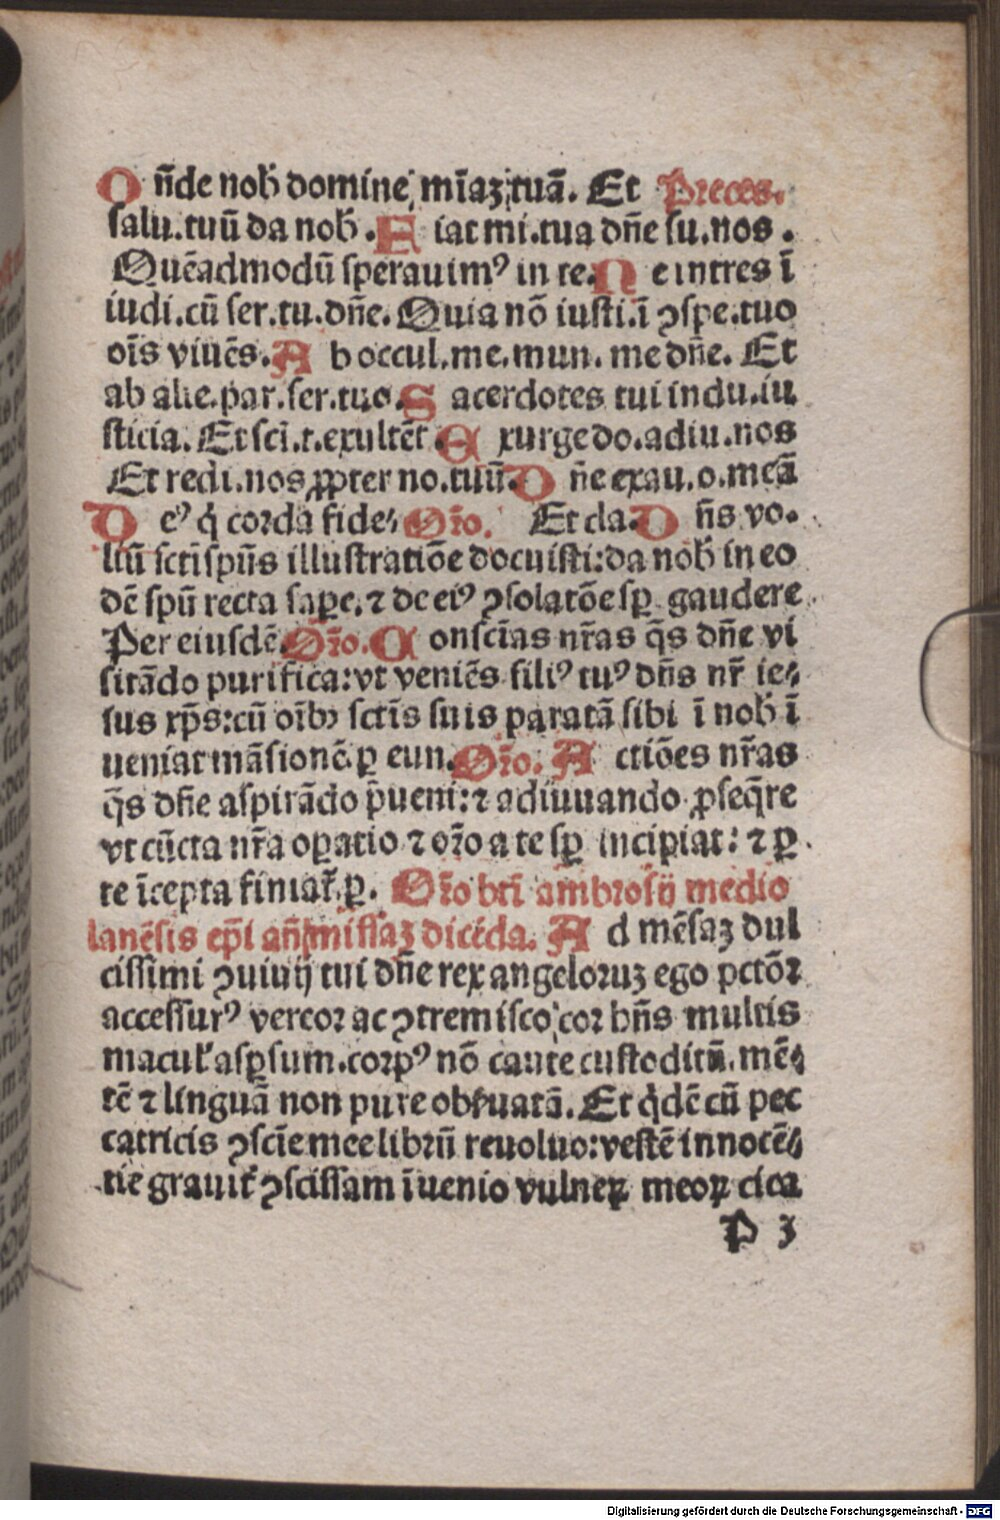 O n̄de nob̄ domine, mīaꝫ tuā. Et Preces.
salu.tuū da nob̄. F iat mi.tua dn̄e su.nos.
Quēadmodū sperauimꝰ in te. N e intres ī
iudi.cū ser.tu.dn̄e. Quia nō iusti.ī ꝯspe.tuo
oīs viuēs. A b occul.me.mun. me dn̄e. Et
ab alie.par.ser.tuo. S acerdotes tui indu.iu
sticia. Et scī.t.exultēt. E xurge do.adiu.nos
Et redi.nos ꝓpter no.tuū. D n̄e exau.o.meā
D eꝰ q̇ corda fide⸗ Or̄o. Et cla. D n̄s vo.
liū sctī spūs illustratiōe docuisti: da nob̄ in eo
dē spū recta saꝑe. ⁊ de eiꝰ ꝯsolatōe sꝑ gaudere
Per eiusdē. Or̄o. C onsciēas nr̄as q̄s dn̄e vi
sitādo purifica: vt veniēs filiꝰ tuꝰ dn̄s nr̄ ie⸗
sus xp̄s: cū oībꝫ sctīs suis paratā sibi ī nob̄ ī
ueniat māsionē. ꝑ eun. Or̄o. A ctiōes nr̄as
q̄s dn̄e aspirādo p̄ueni: ⁊ adiuuando ꝓseq̄re
vt cūcta nr̄a oꝑatio ⁊ or̄o a te sꝑ incipiat: ⁊ ꝑ
te īcepta finiat̄. ꝑ. Or̄o btī ambrosij medio
lanēsis ep̄i an̄ missaꝫ dicēda. A d mēsaꝫ dul
cissimi ꝯuiuij tui dn̄e rex angeloruꝫ ego pctōꝛ
accessurꝰ vereor ac ꝯtremisco, cor hn̄s multis
macul̕ asꝑsum. corpꝰ nō caute custoditū. mē⸗
tē ⁊ linguā non pure obẜuatā. Et q̇dē cū pec
catricis ꝯscīe mee librū reuoluo: vestē innocē⸗
tie grauit̕ ꝯscissam īuenio vulneꝝ meoꝝ cica
P 3
Digitalisierung gefördert durch die Deutsche Forschungsgemeinschaft - DFG